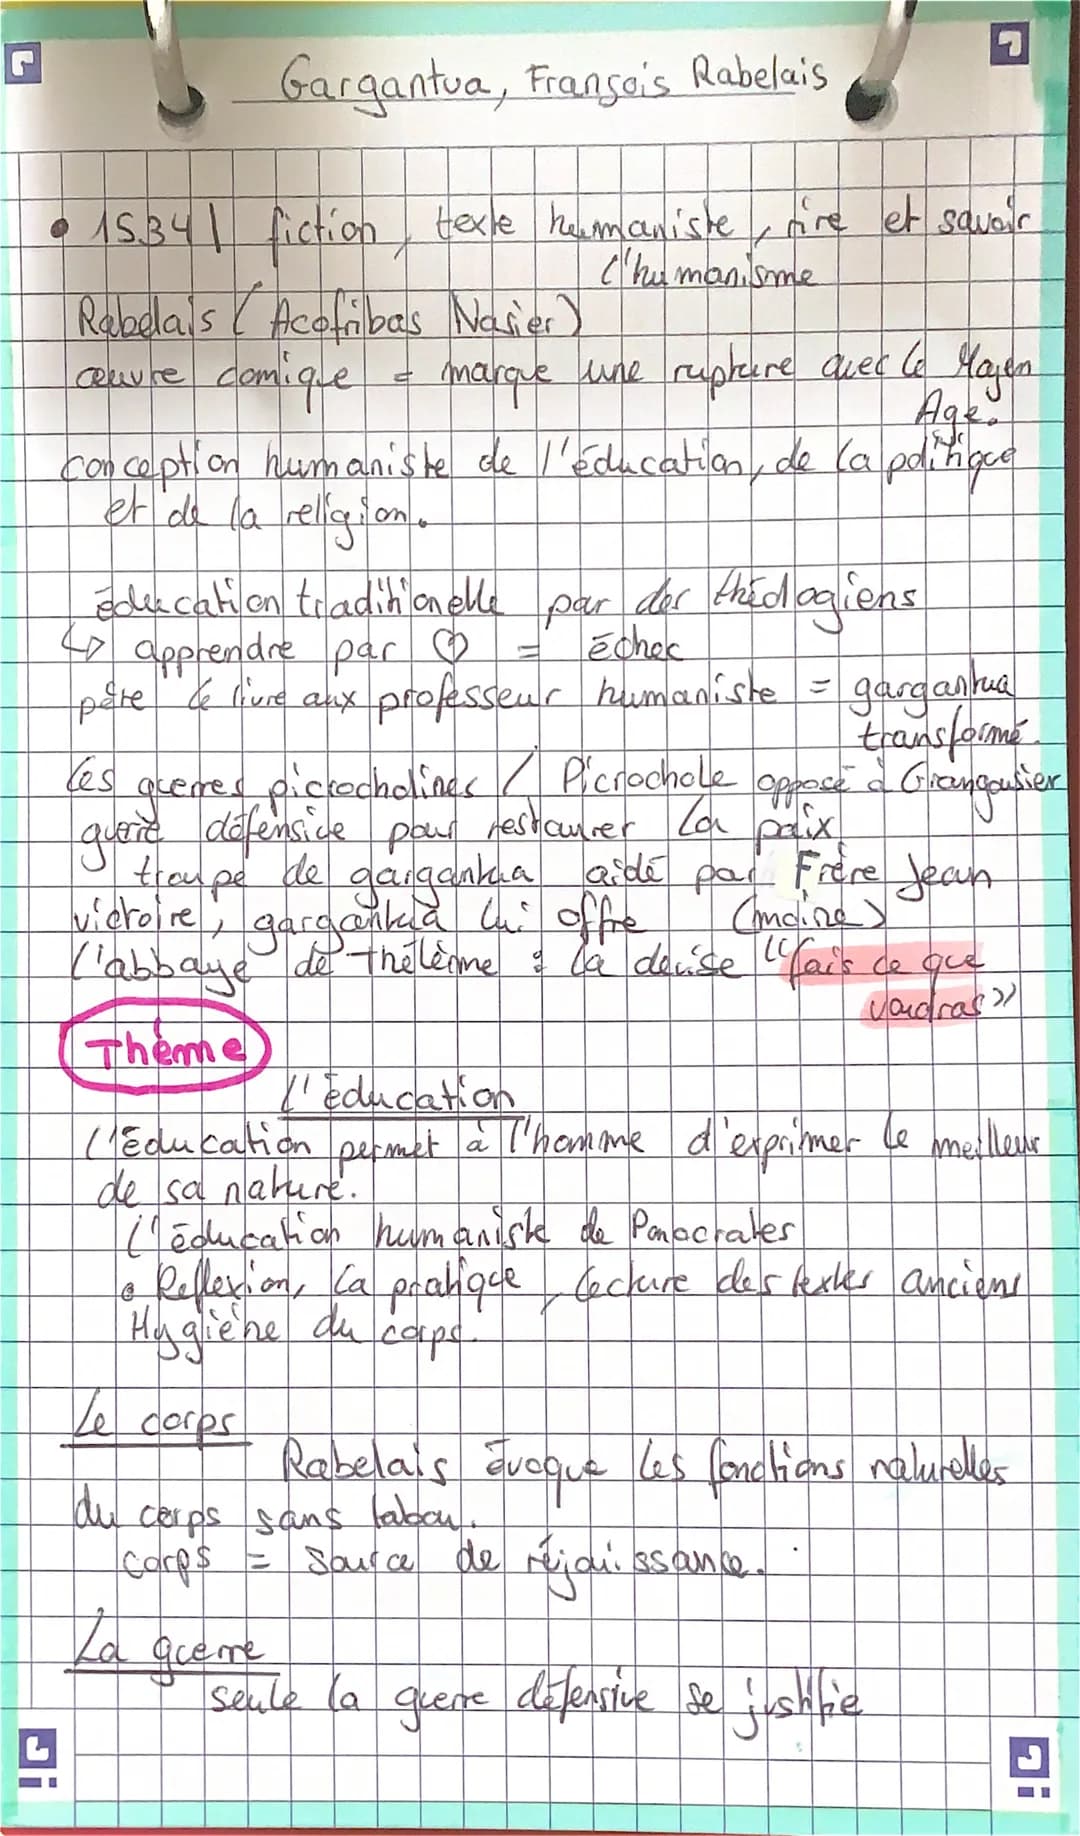 Gargantua, François Rabelais
• 1534 | fiction, texte humaniste, rire et savoir
l'humanisme
Rabelais (Acofribas Nasier)
œuvre comique = marque une rupture avec le Moyen
Age.
conception humaniste de l'éducation, de la politique
et de la religion.
éducation traditionelle par des théologiens
↳ apprendre par ♡ = Échec
père le livre aux professeur humaniste = gargantua
transformé.
Les guerres picrocholines / Picrochole opposé à Grangousier
guerre défensive pour restaurer la paix
troupe de gargantua aidé par Frère Jean
victoire, gargantua lui offre (moine)
l'abbaye de thélème : la devise "fais ce que
voudras"
Thème
l'éducation
l'éducation permet à l'homme d'exprimer le meilleur
de sa nature.
l'éducation humaniste de Ponocrates
• Reflexion, la pratique, lecture des textes anciens
Hygiène du corps.
Le corps
Rabelais évoque les fonctions naturelles
du corps sans tabou.
corps = source de réjouissance.
La guerre
seule la guerre défensive se justifie